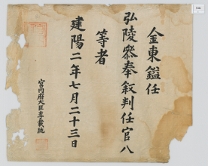 金東鎰任
弘陵參奉敍判任官八
等者
建陽二年七月二十三日
宮內府大臣李載純